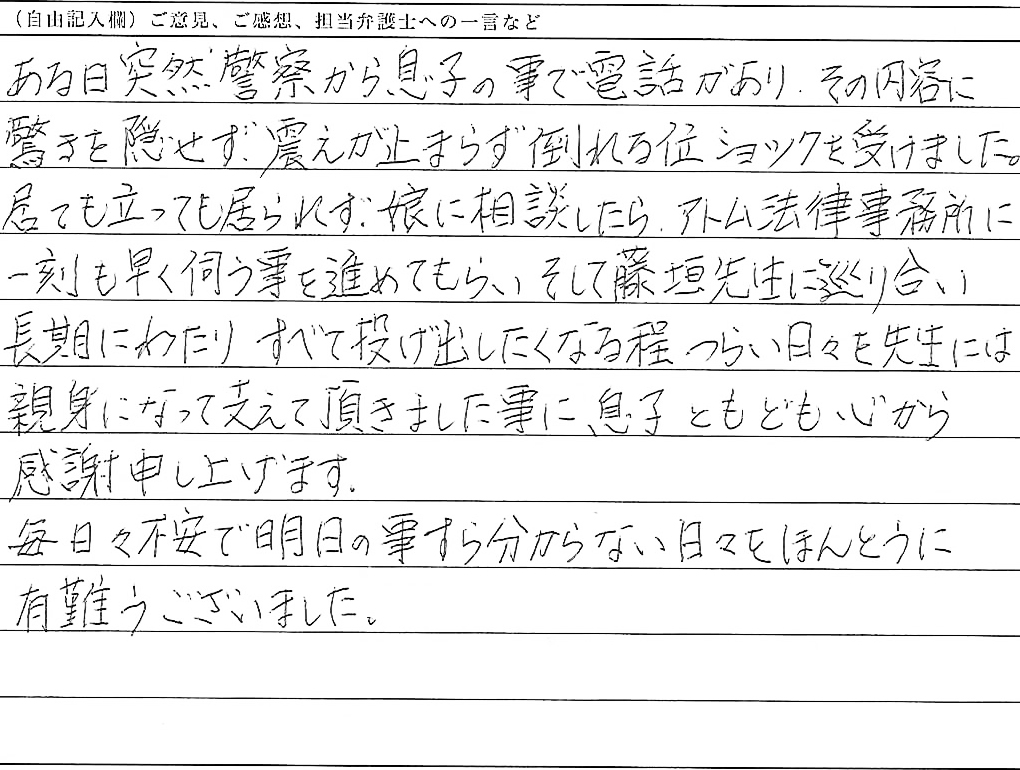 （自由記入欄）ご意見、ご感想、担当弁護士への一言など
ある日突然警察から息子の事で電話があり、その内容に
驚きを隠せず、震えが止まらず倒れる位ショックを受けました。
居ても立っても居られれず、娘に相談したら、アトム法律事務所に
一刻も早く伺う事を進めてもらい そして藤垣先生に巡り合い
長期にわたり すべて投げ出したくなる程、つらい日々を先生には
親身になって支えて頂きました事に、息子ともども心から
感謝申し上げます。
毎日々不安で明日の事すら分からない日々をほんとうに
有難うございました。